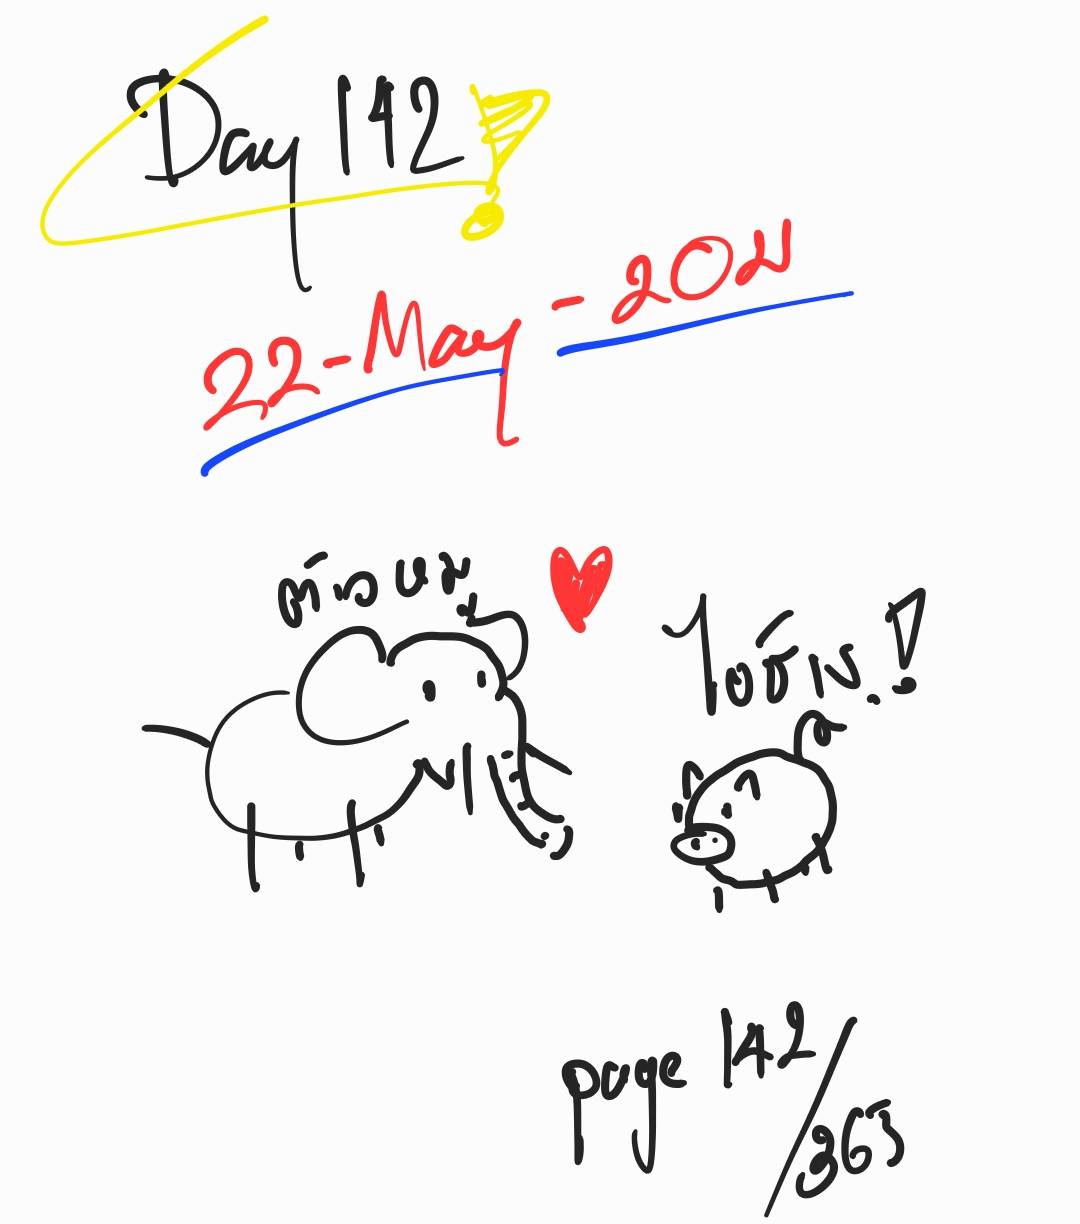 Day 142!
22-May-2021
ตัวหมู
page 142/365